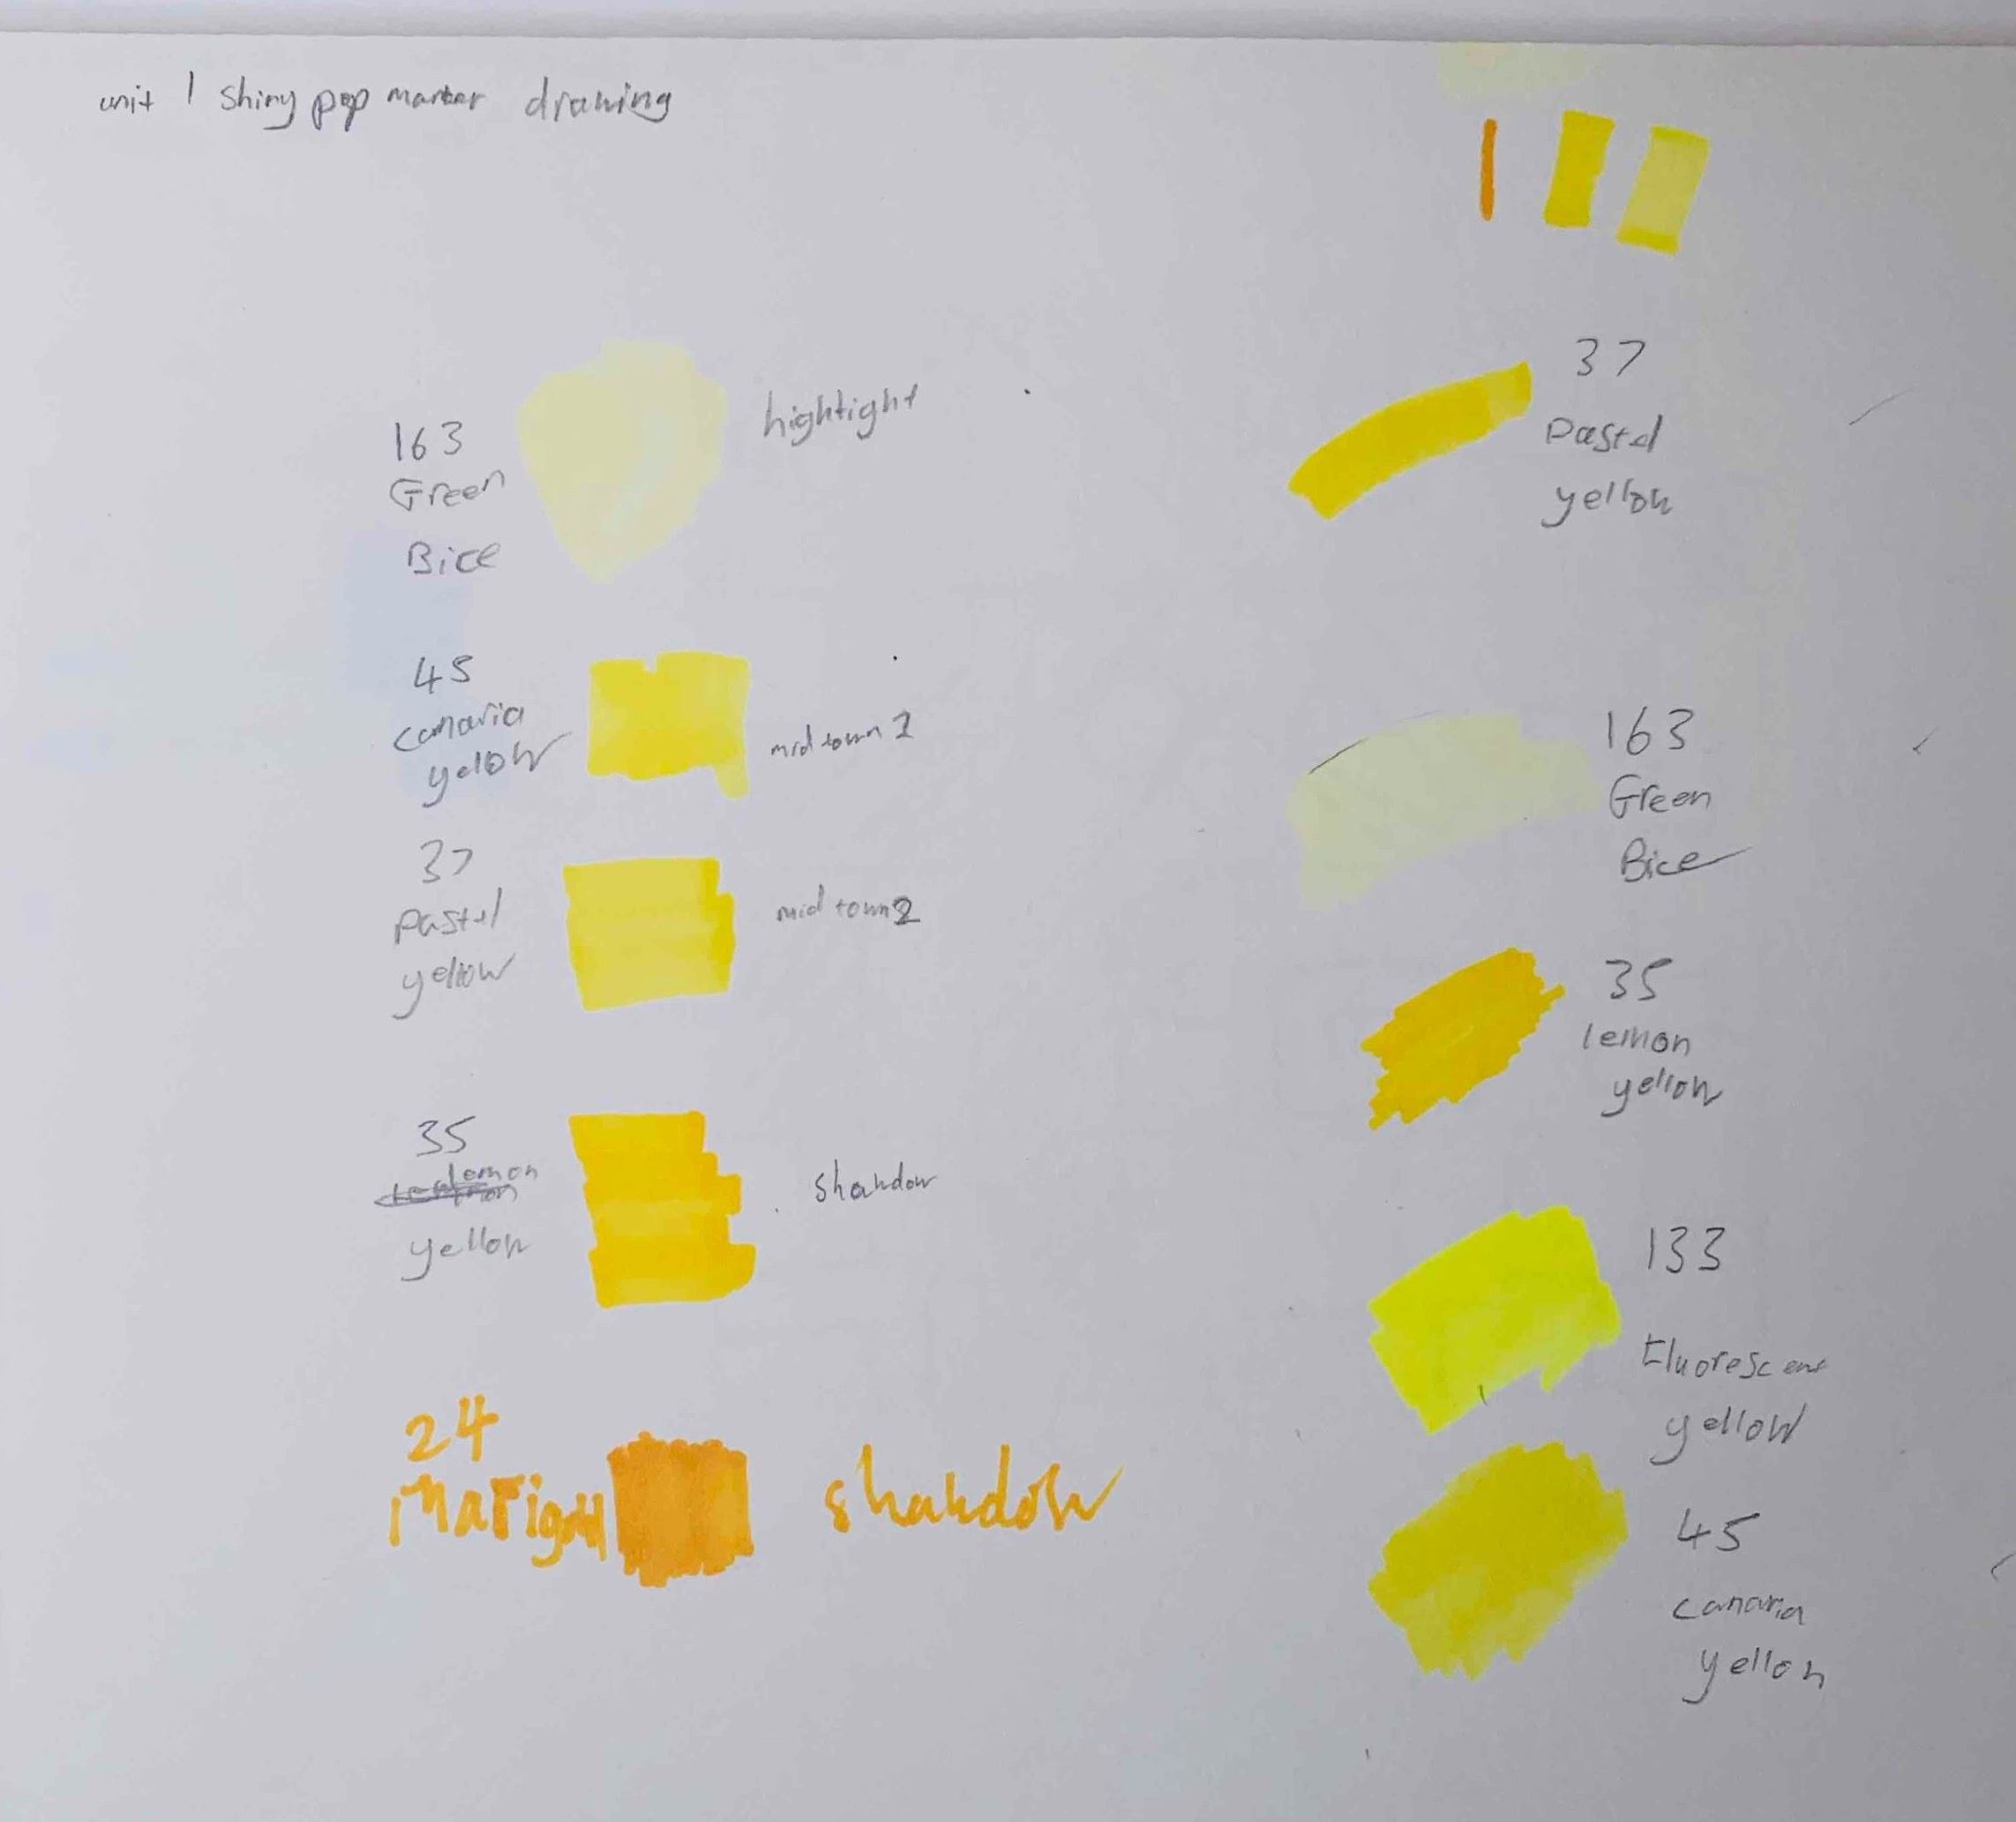 unit 1 shiny pop marker drawing
163
Green
Bice
hightight
45
canaria
yellow
mid town 1
37
pastel
yellow
mid town 2
35
lemon
yellow
shandow
24
marigold
shandow
37
Pastel
yellow
163
Green
Bice
35
lemon
yellow
133
Fluorescent
yellow
45
canaria
yellow